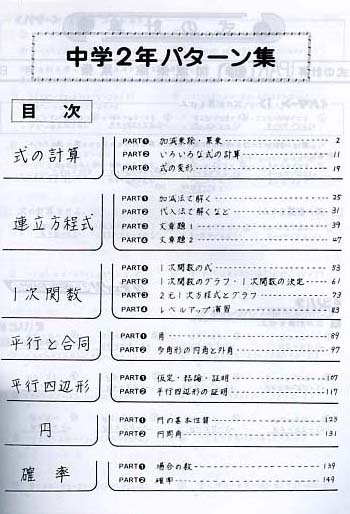 中学2年パターン集
目 次
式の計算
PART❶ 加減乗除・累乗 2
PART❷ いろいろな式の計算 11
PART❸ 式の変形 19
連立方程式
PART❶ 加減法で解く 25
PART❷ 代入法で解くなど 31
PART❸ 文章題1 39
PART❹ 文章題2 47
1次関数
PART❶ 1次関数の式 53
PART❷ 1次関数のグラフ・1次関数の決定 61
PART❸ 2元1次方程式とグラフ 73
PART❹ レベルアップ演習 83
平行と合同
PART❶ 角 89
PART❷ 多角形の内角と外角 97
平行四辺形
PART❶ 仮定・結論・証明 107
PART❷ 平行四辺形の証明 117
円
PART❶ 円の基本性質 123
PART❷ 円周角 131
確率
PART❶ 場合の数 139
PART❷ 確率 149